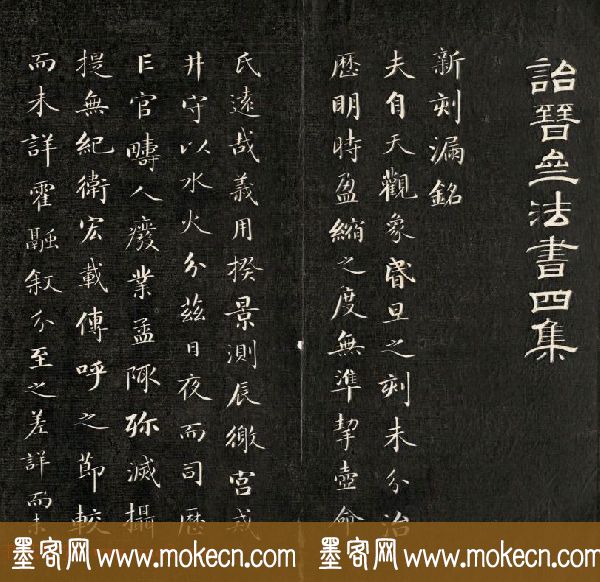 詒晉齋法書四集
新刻漏銘
夫自天觀象昬旦之刻未分治
歷明時盈縮之度無準挈壺命
氏遠哉義用揆景測辰徼宮戒
井守以水火分茲日夜而司歷
亡官疇人廢業孟陬殄滅攝
提無紀衛宏載傳呼之節較
而未詳霍融叙分至之差詳而未
墨客网 www.mokecn.com 墨客网 www.mokecn.com